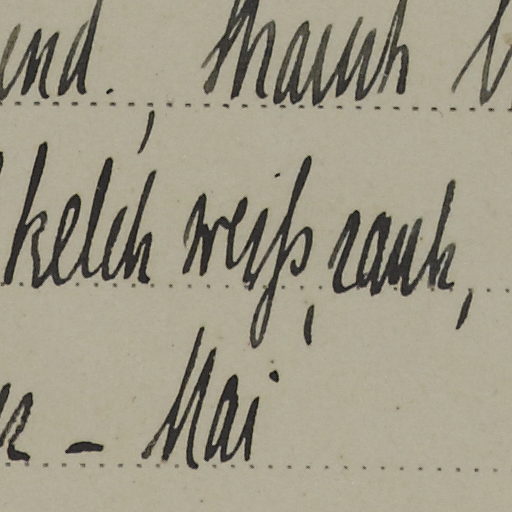 end. Strauch
kelch weiß, rauh,
– Mai